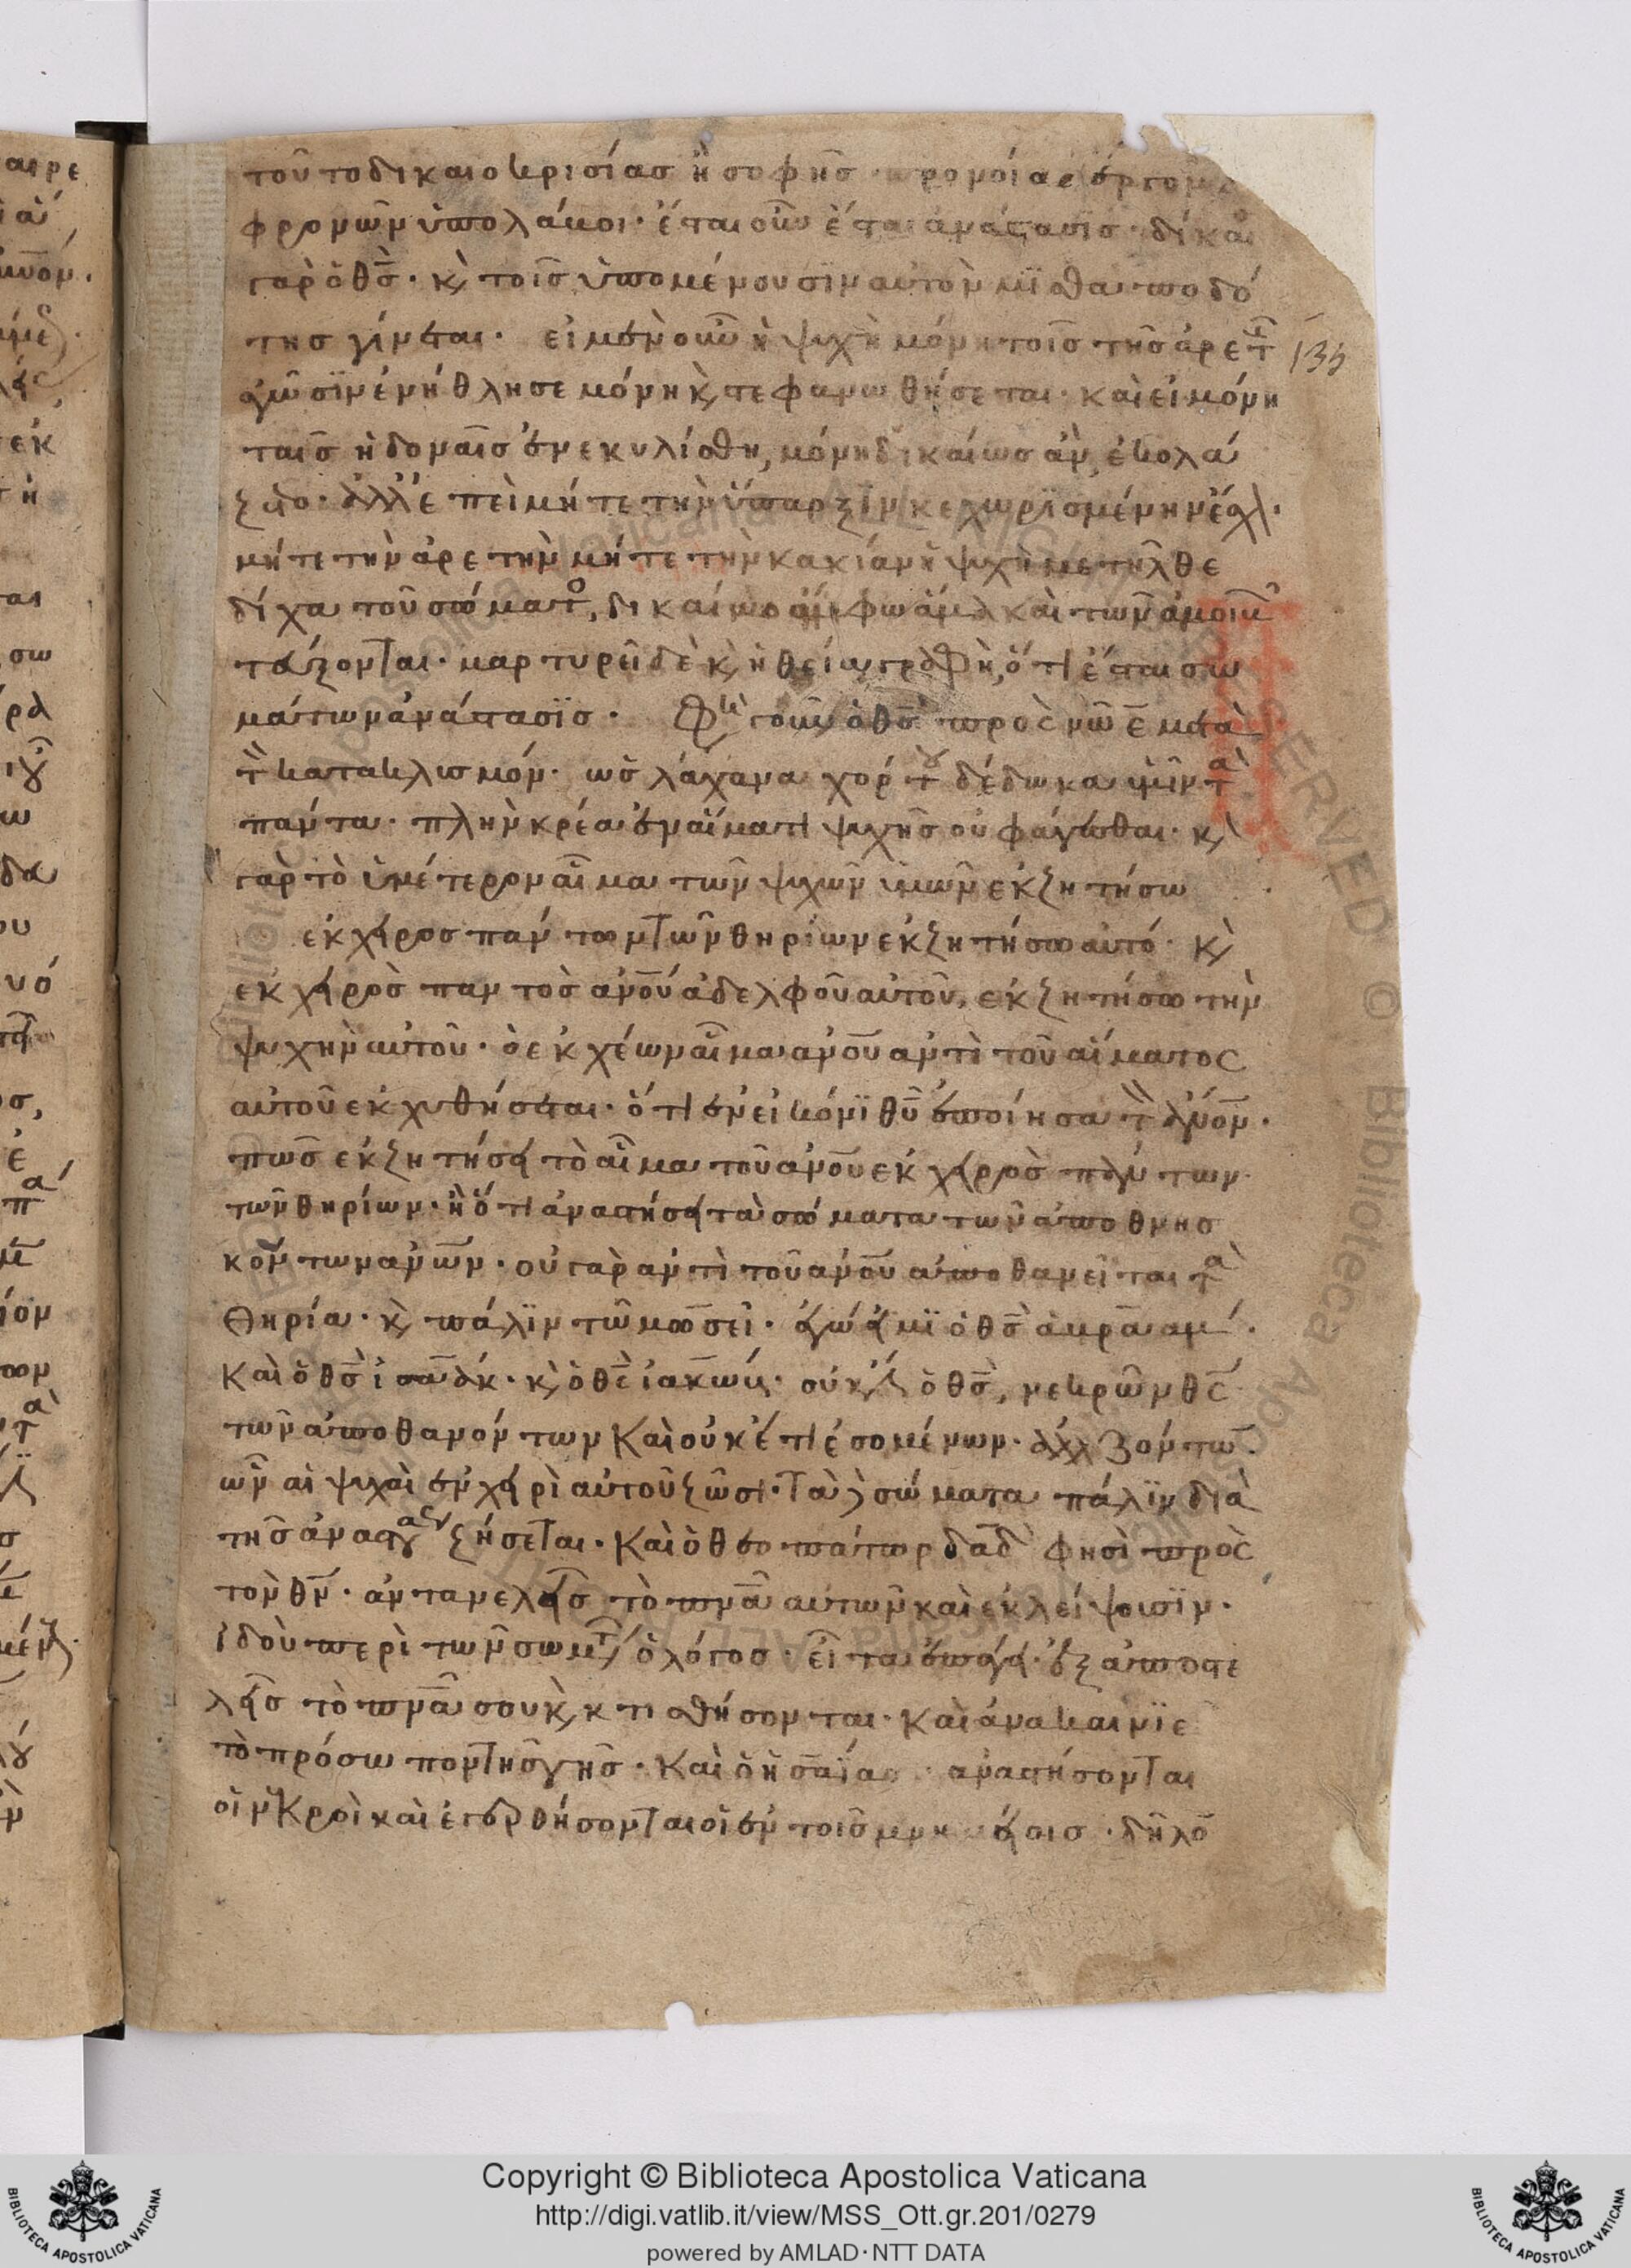 τοῦτο δικαιοκρισίας ἢ σοφῆς προνοίας ἔργον
φρονῶν ὑπολάβοι· ἔσται οὖν ἔσται ἀνάστασις· δίκαι
γὰρ ὁ θς· κ τοῖς ὑπομένουσιν αὐτὸν μισθαποδό
της γίνεται· εἰ μὲν οὖν ἡ ψυχὴ μόνη τοῖς τῆς ἀρετ
ἀγῶσιν ἐνήθλησε μόνη κ στεφανωθήσεται· καὶ εἰ μόνη
ταῖς ἡδοναῖς ἐνεκυλίσθη, μόνη δικαίως ἂν ἐκολά
ζετο· ἀλλ' ἐπεὶ μήτε τὴν ὕπαρξιν κεχωρισμένην ἔσχ·
μήτε τὴν ἀρετὴν μήτε τὴν κακίαν ἡ ψυχὴ μετῆλθε
δίχα τοῦ σώματο, δικαίως ἄμφω ἅμα καὶ τῶν ἀμοιβ
τεύξονται· μαρτυρεῖ δὲ κ ἡ θεία γραφὴ, ὅτι ἔσται σω
μάτων ἀνάστασις· Φη γοῦν ὁ θς πρὸς νῶε μετὰ
τ κατακλισμόν· ὡς λάχανα χόρτου δέδωκα ὑμῖν τὰ
πάντα· πλὴν κρέας ἐν αἵματι ψυχῆς οὐ φάγεσθαι· κ
γὰρ τὸ ὑμέτερον αἷμα τῶν ψυχῶν ὑμῶν ἐκζητήσω
ἐκ χειρὸς πάντων τῶν θηρίων ἐκζητήσω αὐτό· κ
ἐκ χειρὸς παντὸς ανου ἀδελφοῦ αὐτοῦ, ἐκζητήσω τὴν
ψυχὴν αὐτοῦ· ὁ ἐκχέων αἷμα ανου ἀντὶ τοῦ αἵματος
αὐτοῦ ἐκχυθήσεται· ὅτι ἐν εἰκόνι θυ ἐποίησα τ ανον·
πῶς ἐκζητήσει τὸ αἷμα τοῦ ανου ἐκ χειρὸς πάντων
τῶν θηρίων· ἢ ὅτι ἀναστήσει τὰ σώματα τῶν ἀποθνησ
κόντων ανων· οὐ γὰρ ἀντὶ τοῦ ανου ἀποθανεῖται τὰ
θηρία· κ πάλιν τῶ μωσεῖ· ἐγώ εἰμι ὁ θς ἀβραάμ·
Καὶ ὁ θς ἰσαάκ· κ ὁ θς ἰακώβ· οὐκ ἔστιν ὁ θς, νεκρῶν θς
τῶν ἀποθανόντων καὶ οὐκέτι ἐσομένων· ἀλλὰ ζόντω·
ὧν αἱ ψυχαὶ ἐν χειρὶ αὐτοῦ ζῶσι· τὰ δὲ σώματα πάλιν διὰ
τῆς ἀναστάσεως ζήσεται· Καὶ ὁ θεοπάτωρ δαδ φησὶ πρὸς
τὸν θν· ἀντανελεῖς τὸ πνα αὐτῶν καὶ ἐκλείψουσιν·
ἰδοὺ περὶ τῶν σωμτ ὁ λόγος· εἶτα ἐπάγει· ἐξαποστε
λεῖς τὸ πνα σου κ κτισθήσονται· καὶ ἀνακαινιε
τὸ πρόσωπον τῆς γῆς· Καὶ ὁ ἠσαΐας· ἀναστήσονται
οἱ νεκροὶ καὶ ἐγερθήσονται οἱ ἐν τοῖς μνημείοις· δῆλο
Copyright © Biblioteca Apostolica Vaticana
http://digi.vatlib.it/view/MSS_Ott.gr.201/0279
powered by AMLAD·NTT DATA